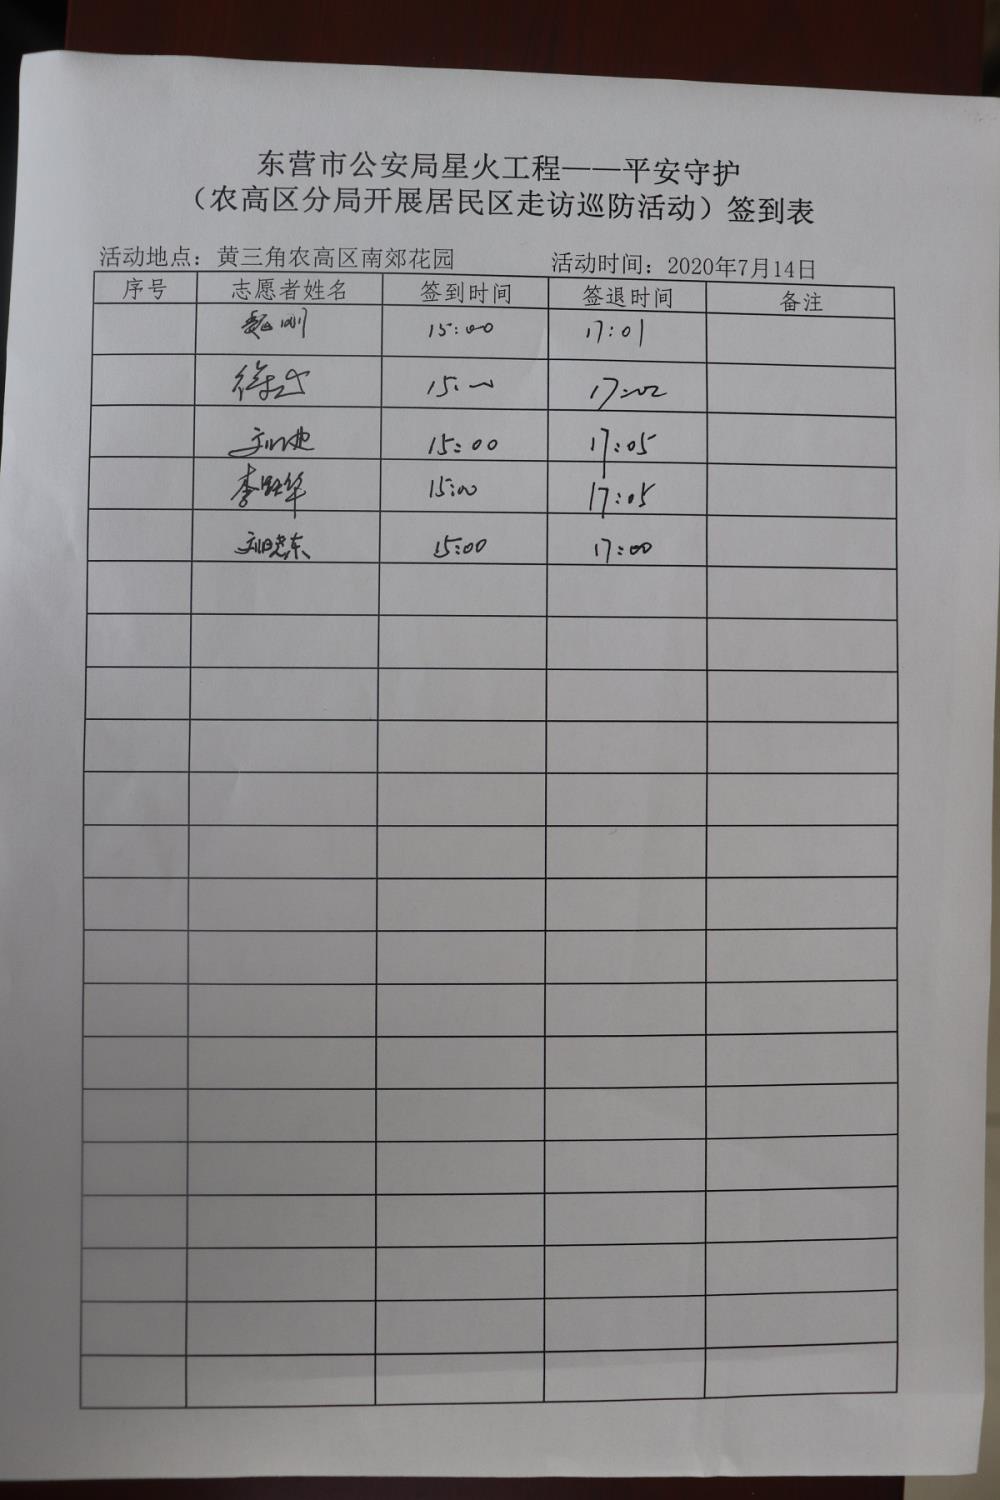 东营市公安局星火工程——平安守护
（农高区分局开展居民区走访巡防活动）签到表
活动地点：黄三角农高区南郊花园 活动时间：2020年7月14日
序号 志愿者姓名 签到时间 签退时间 备注
魏刚 15:00 17:01
徐 15:00 17:02
刘 15:00 17:05
李 华 15:00 17:05
刘晓东 15:00 17:00